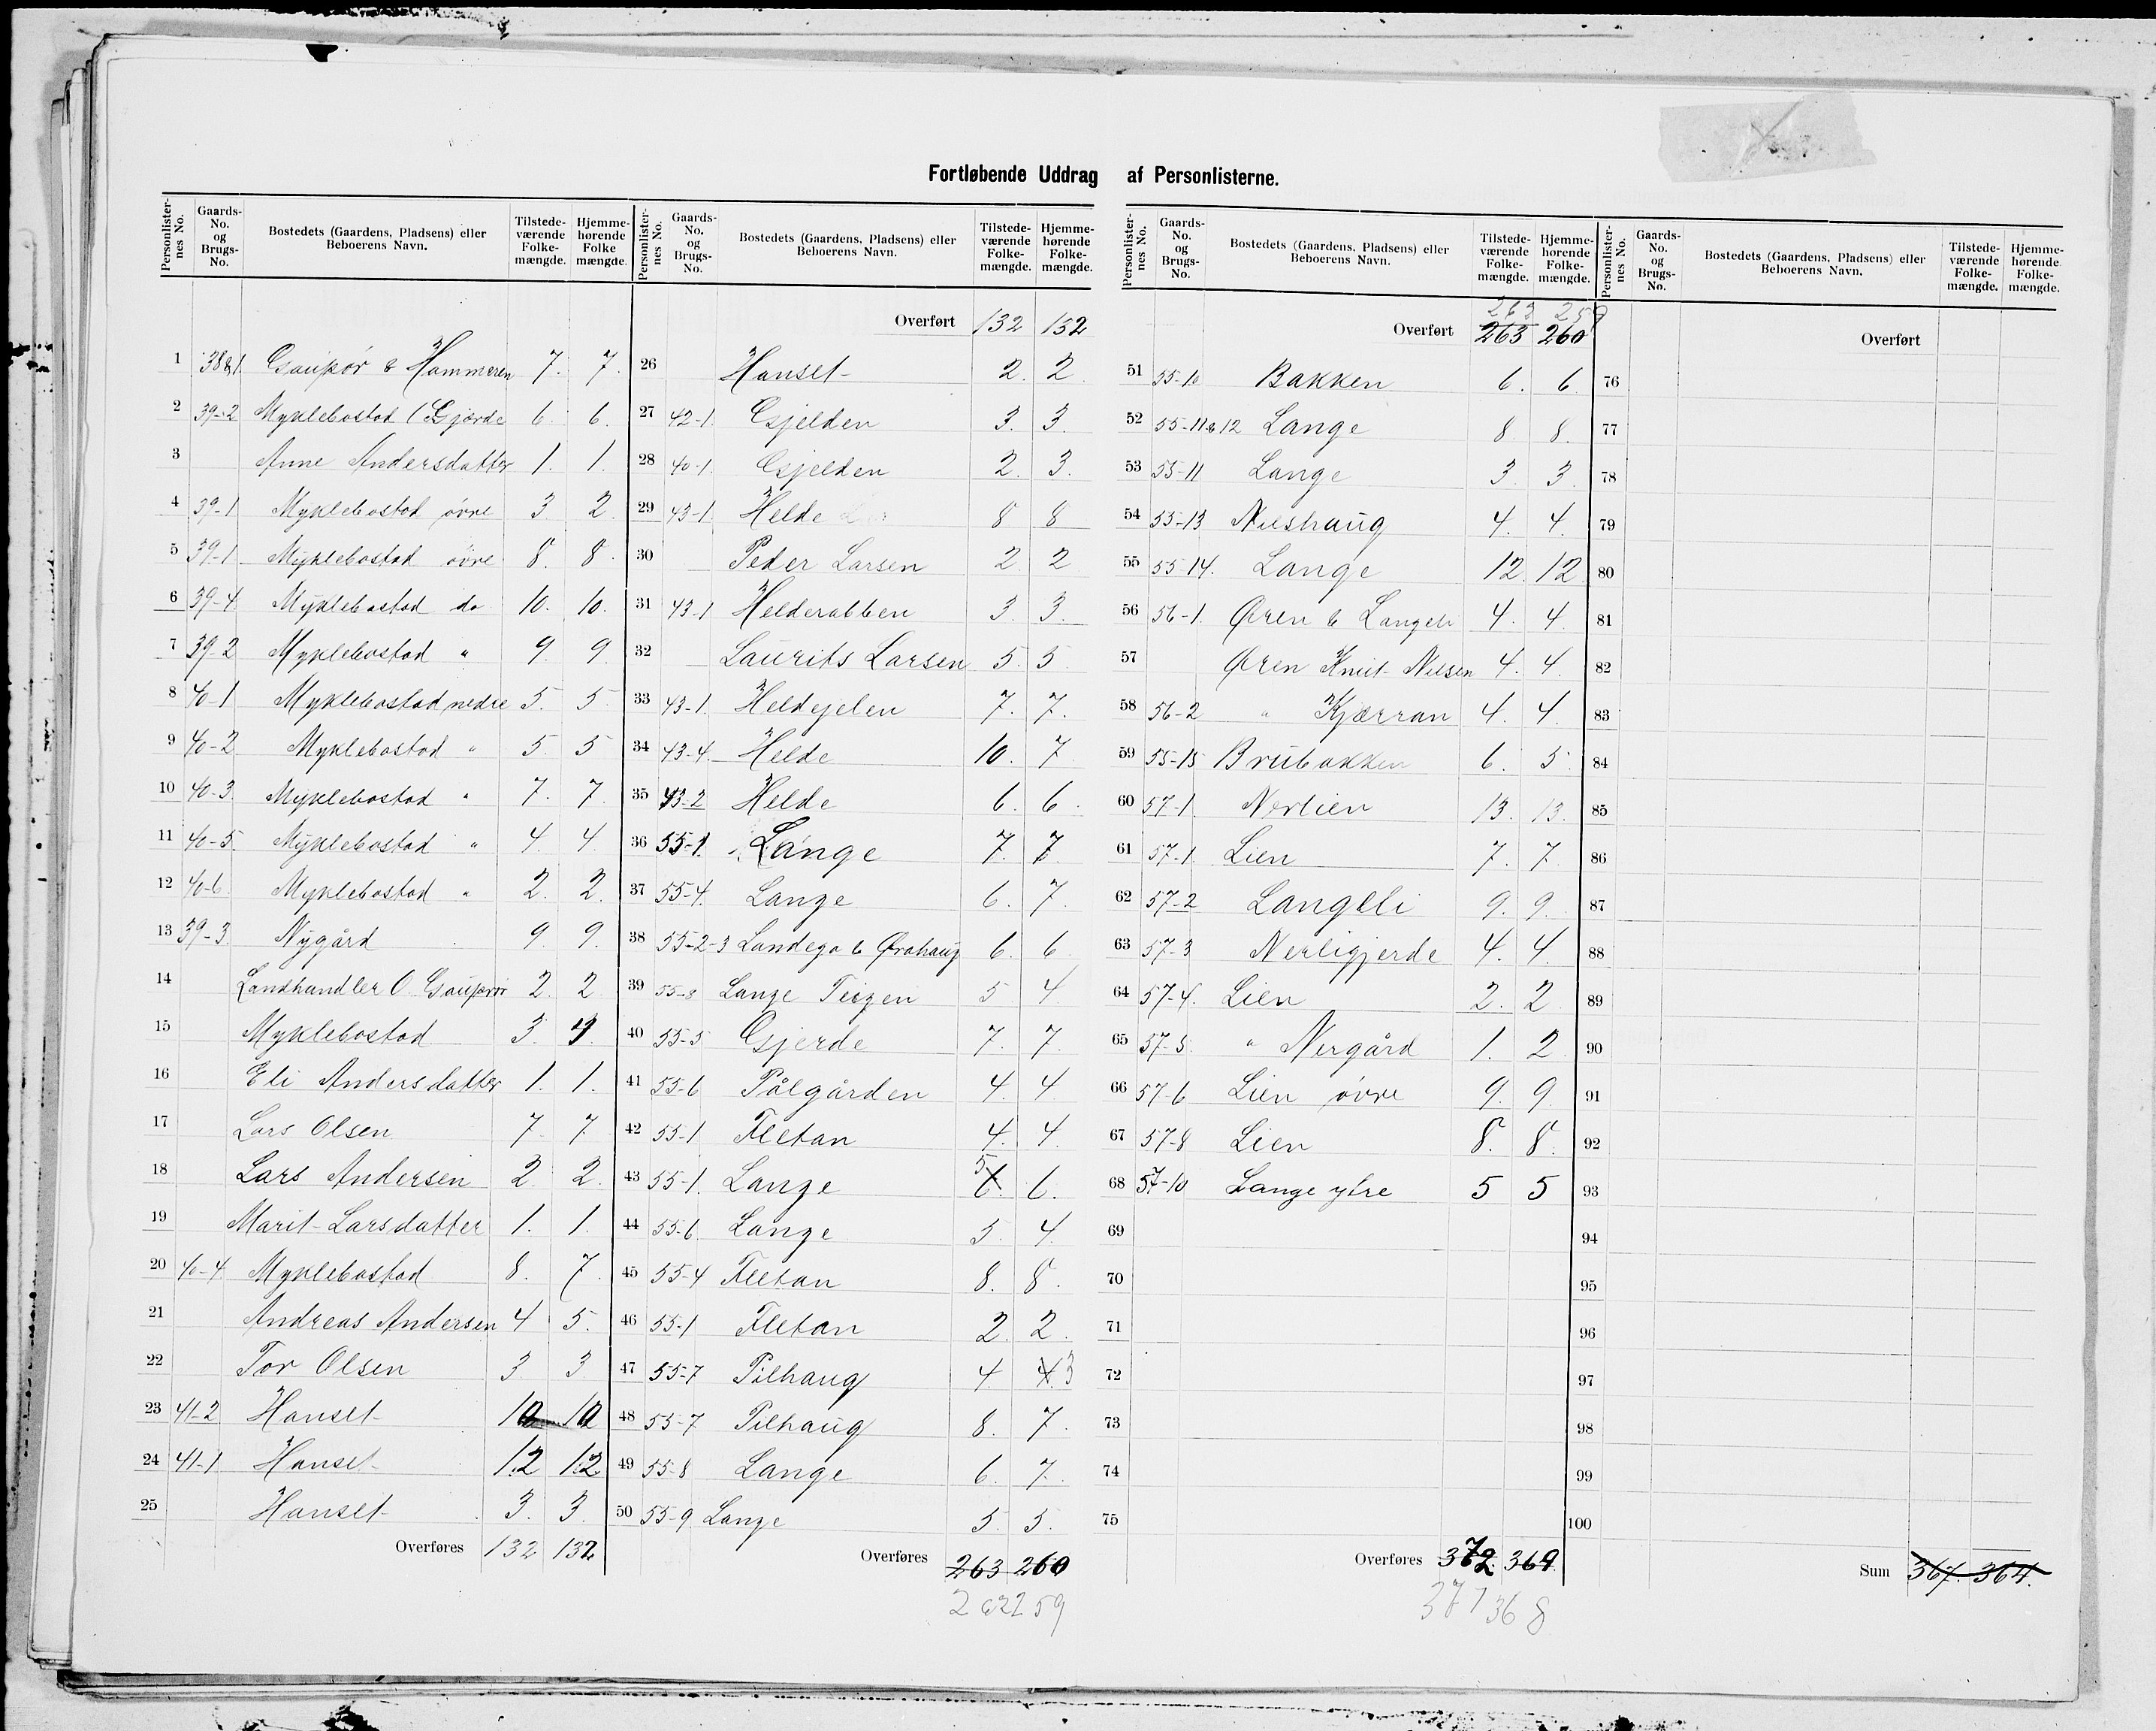 Fortløbende Uddrag af Personlisterne.
Personlisternes No. Gaards-No. og Brugs-No. Bostedets (Gaardens, Pladsens) eller Beboerens Navn. Tilstedeværende Folkemængde. Hjemmehørende Folkemængde.
1 38&1. Gaupør & Hammeren 7. 7.
2 39-2 Myklebostad (Gjørde 6. 6.
3 Anne Andersdatter 1. 1.
4 39-1 Myklebostad øvre 3 2
5 39-1 Myklebostad øvre 8. 8.
6 39-4 Myklebostad do 10. 10.
7 39-2 Myklebostad " 9. 9.
8 40-1 Myklebostad nedre 5. 5
9 40-2 Myklebostad " 5. 5
10 40-3. Myklebostad " 7. 7.
11 40-5. Myklebostad " 4. 4
12 40-6 Myklebostad " 2. 2.
13 39-3. Nygård 9. 9.
14 Landhandler O. Gaupør 2. 2
15 Myklebostad 3.
16 Eli Andersdatter 1. 1.
17 Lars Olsen 7. 7
18 Lars Andersen 2. 2.
19 Marit Larsdatter 1. 1.
20 40-4 Myklebostad 8. 7.
21 Andreas Andersen 4 5.
22 Tor Olsen 3. 3
23 41-2 Hanset 10 10
24 41-1 Hanset 12 12
25 Hanset 3. 3.
Overføres 132 132
Personlisternes No. Gaards-No. og Brugs-No. Bostedets (Gaardens, Pladsens) eller Beboerens Navn. Tilstedeværende Folkemængde. Hjemmehørende Folkemængde.
Overført 132 132
26 Hanset 2. 2
27 42-1. Gjelden 3. 3.
28 40-1. Gjelden 2. 3.
29 43-1. Helde 8 8
30 Peder Larsen 2 2
31 43-1 Helderabben 3. 3.
32 Laurits Larsen 5. 5
33 43-1. Heldejelen 7. 7.
34 43-4. Helde 10. 7.
35 43-2 Helde 6. 6.
36 55-1. Lange 7. 7
37 55-4. Lange 6. 7.
38 55-2-3 Landego & Ørahaug 6. 6
39 55-8 Lange Teigen 5 4
40 55-5 Gjerde 7. 7.
41 55-6 Pålgården 4. 4
42 55-1 Fletan 4. 4.
43 55-1. Lange 6. 5 6.
44 55-6. Lange 5. 4.
45 55-4 Fletan 8. 8.
46 55-1 Fletan 2. 2.
47 55-7 Pilhaug 4. 4. 3
48 55-7 Pilhaug 8. 7.
49 55-8 Lange 6. 7.
50 55-9 Lange 5. 5.
Overføres 263 260
262 259
Personlisternes No. Gaards-No. og Brugs-No. Bostedets (Gaardens, Pladsens) eller Beboerens Navn. Tilstedeværende Folkemængde. Hjemmehørende Folkemængde.
263 259
Overført 263 260
51 55-10 Bakken 6. 6
52 55-11&12 Lange 8 8.
53 55-11 Lange 3. 3.
54 55-13 Nilshaug 4. 4.
55 55-14. Lange 12. 12
56 56-1. Øren & Langeli 4. 4.
57 Øren Knut Nilsen 4. 4.
58 56-2 " Kjærran 4. 4.
59 55-15 Brubakken 6. 5.
60 57-1. Nerlien 13. 13.
61 57-1. Lien 7. 7.
62 57-2 Langeli 9. 9.
63 57-3 Nerligjerde 4. 4.
64 57-4. Lien 2. 2
65 57-5. " Nergård 1. 2
66 57-6 Lien øvre 9. 9.
67 57-8 Lien 8. 8.
68 57-10 Lange ytre 5 5
69
70
71
72
73
74
75
Overføres 372. 369.
371 368
Personlisternes No. Gaards-No. og Brugs-No. Bostedets (Gaardens, Pladsens) eller Beboerens Navn. Tilstedeværende Folkemængde. Hjemmehørende Folkemængde.
Overført
76
77
78
79
80
81
82
83
84
85
86
87
88
89
90
91
92
93
94
95
96
97
98
99
100
Sum 367. 364.